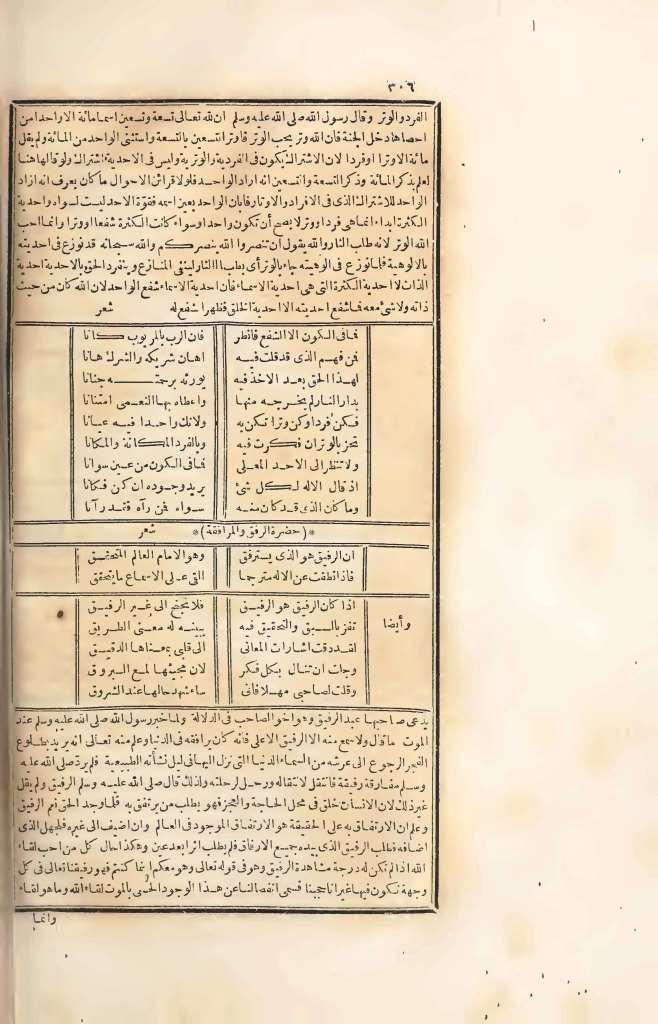 ٣٠٦
الفرد والوتر وقال رسول الله صلى الله عليه وسلم ان لله تعالى تسعة وتسعين اسما مائة الا واحدا من
احصاها دخل الجنة فان الله وتر يحب الوتر فاوتر التسعين بالتسعة واستثنى الواحد من المائة ولم يقل
مائة الا وترا او فردا لان الاشتراك يكون فى الفردية والوترية وليس فى الاحدية اشتراك ولو قالها هنا
لعلم بذكر المائة وذكر التسعة والتسعين انه اراد الواحد فلولا قرائن الاحوال ما كان يعرف انه اراد
الواحد للاشتراك الذى فى الافراد والاوتار فابان الواحد بعين اسمه فقوة الاحدية ليست لسواه واحدية
الكثرة ابدا انما هى فرد او وتر لا يصح أن تكون واحدا وسواء كانت الكثرة شفعا او وترا وانما احب
الله الوتر لانه طلب الثار والله يقول ان تنصروا الله ينصركم والله سبحانه قد نوزع فى احديته
بالالوهية فلما نوزع فى الوهيته جاء بالوتر أى بطلب الثار ليفنى المنازع وينفرد الحق بالاحدية احدية
الذات لا احدية الكثرة التى هى احدية الاسماء فان احدية الاسماء شفع الواحد لان الله كان من حيث
ذاته ولا شئ معه فما شفع احديته الا احدية الخلق فظهر الشفع له شعر
فما فى الكون الا الشفع فانظر فان الرب بالمربوب كانا
فمن فهم الذى قد قلت فيه اهان شريكه والشرك هانا
لهذا الحق بعد الاخذ فيه يورثه برحمته جنانا
بدار النار لم يخرجه منها واعطاه بها النعمى امتنانا
فكن فردا وكن وترا تكن به ولا تك واحدا فيه عيانا
تحز بالوتر ان فكرت فيه وبالفرد المكانة والمكانا
ولا تنظر الى الاحد المعلى فما فى الكون من عين سوانا
اذ قال الاله لكل شئ يريد وجوده ان كن فكانا
وما كان الذى قد كان منه سواه فمن رآه فقد رآنا
*(حضرة الرفق والمرافقة)* شعر
ان الرفيق هو الذى يسترفق وهو الامام العالم المتحقق
فاذا نطقت عن الاله مترجما التى على الاسماع ما يتحقق
وأيضا
اذا كان الرفيق هو الرفيق فلا تجنح الى غير الرفيق
تفز بالسبق والتحقيق فيه يبينه له معنى الطريق
لقد دقت اشارات المعانى الى قلبى بمعناها الدقيق
وجلت ان تنال بكل فكر لان مجيئها لمع البروق
وقلت لصاحبى مهلا فانى سأشهد حالها عند الشروق
يدعى صاحبها عبد الرفيق وهو اخو الصاحب فى الدلالة ولما خير رسول الله صلى الله عليه وسلم عند
الموت ما قال ولا سمع منه الا الرفيق الاعلى فانه كان يرافقه فى الدنيا وعلم منه تعالى انه يريد بطلوع
الفجر الرجوع الى عرشه من السماء الدنيا التى نزل اليها فى ليل نشأته الطبيعية فلم يرد صلى الله عليه
وسلم مفارقة رفيقه فانتقل لانتقاله ورحل لرحلته ولذلك قال صلى الله عليه وسلم الرفيق ولم يقل
غير ذلك لان الانسان خلق فى محل الحاجة والعجز فهو يطلب من يرتفق به فلما وجد الحق نعم الرفيق
وعلم ان الارتفاق به على الحقيقة هو الارتفاق الموجود فى العالم وان اضيف الى غيره فلجهل الذى
اضافه فطلب الرفيق الذى بيده جميع الارفاق فلم يطلب اثرا بعد عين وهكذا حال كل من احب لقاء
الله اذا لم تكن له درجة مشاهدة الرفيق وهو فى قوله تعالى وهو معكم اينما كنتم فهو رفيقنا تعالى فى كل
وجهة نكون فيها غير انا حجبنا فسمى انفصالنا عن هذا الوجود الحسى بالموت لقاء الله وما هو لقاء
وانما